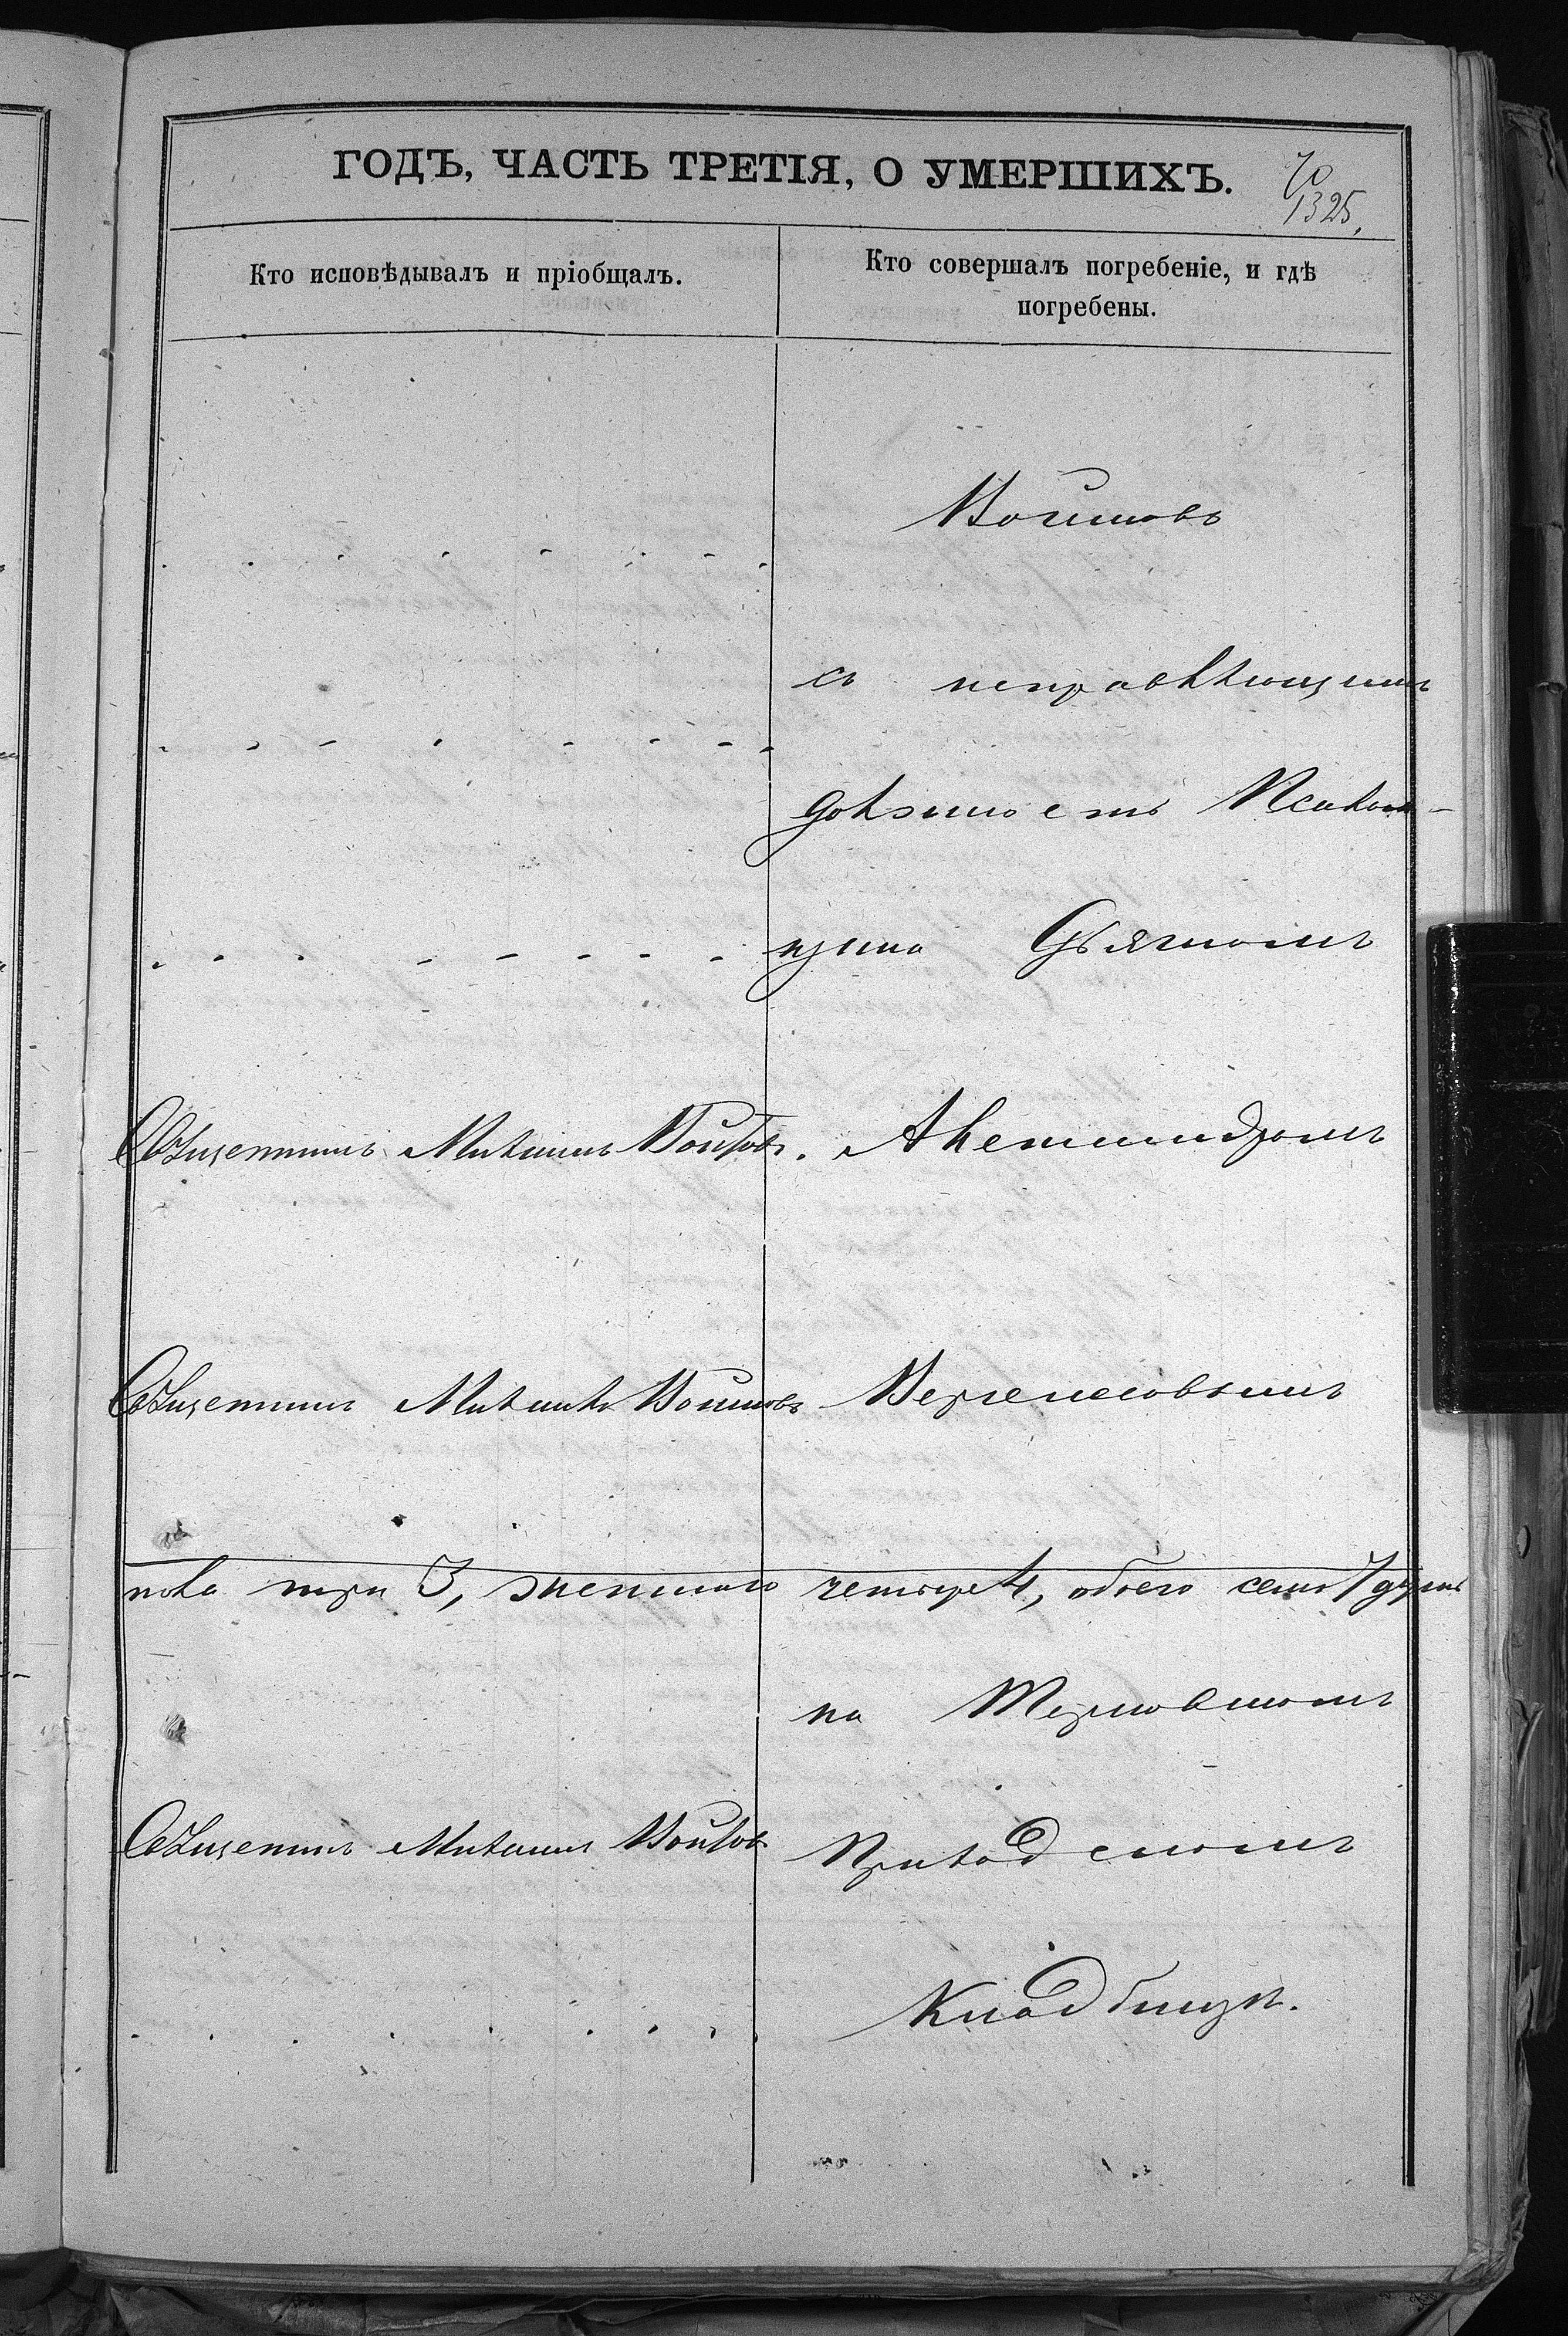 ГОДЪ, ЧАСТЬ ТРЕТІЯ, О УМЕРШИХЪ.
70
1325,
Кто исповѣдывалъ и пріобщалъ.
Кто совершалъ погребеніе, и гдѣ
погребены.
Войтовъ
съ исправляющимъ
должность Псалом-
щика Дьячкомъ
Священникъ Михаилъ Войтовъ.
Александромъ
Священникъ Михаилъ Войтовъ
пола три 3, женскаго четыре 4, обоего семь 7 душъ
на
Священникъ Михаилъ Войтовъ
Приходскомъ
Кладбищѣ.